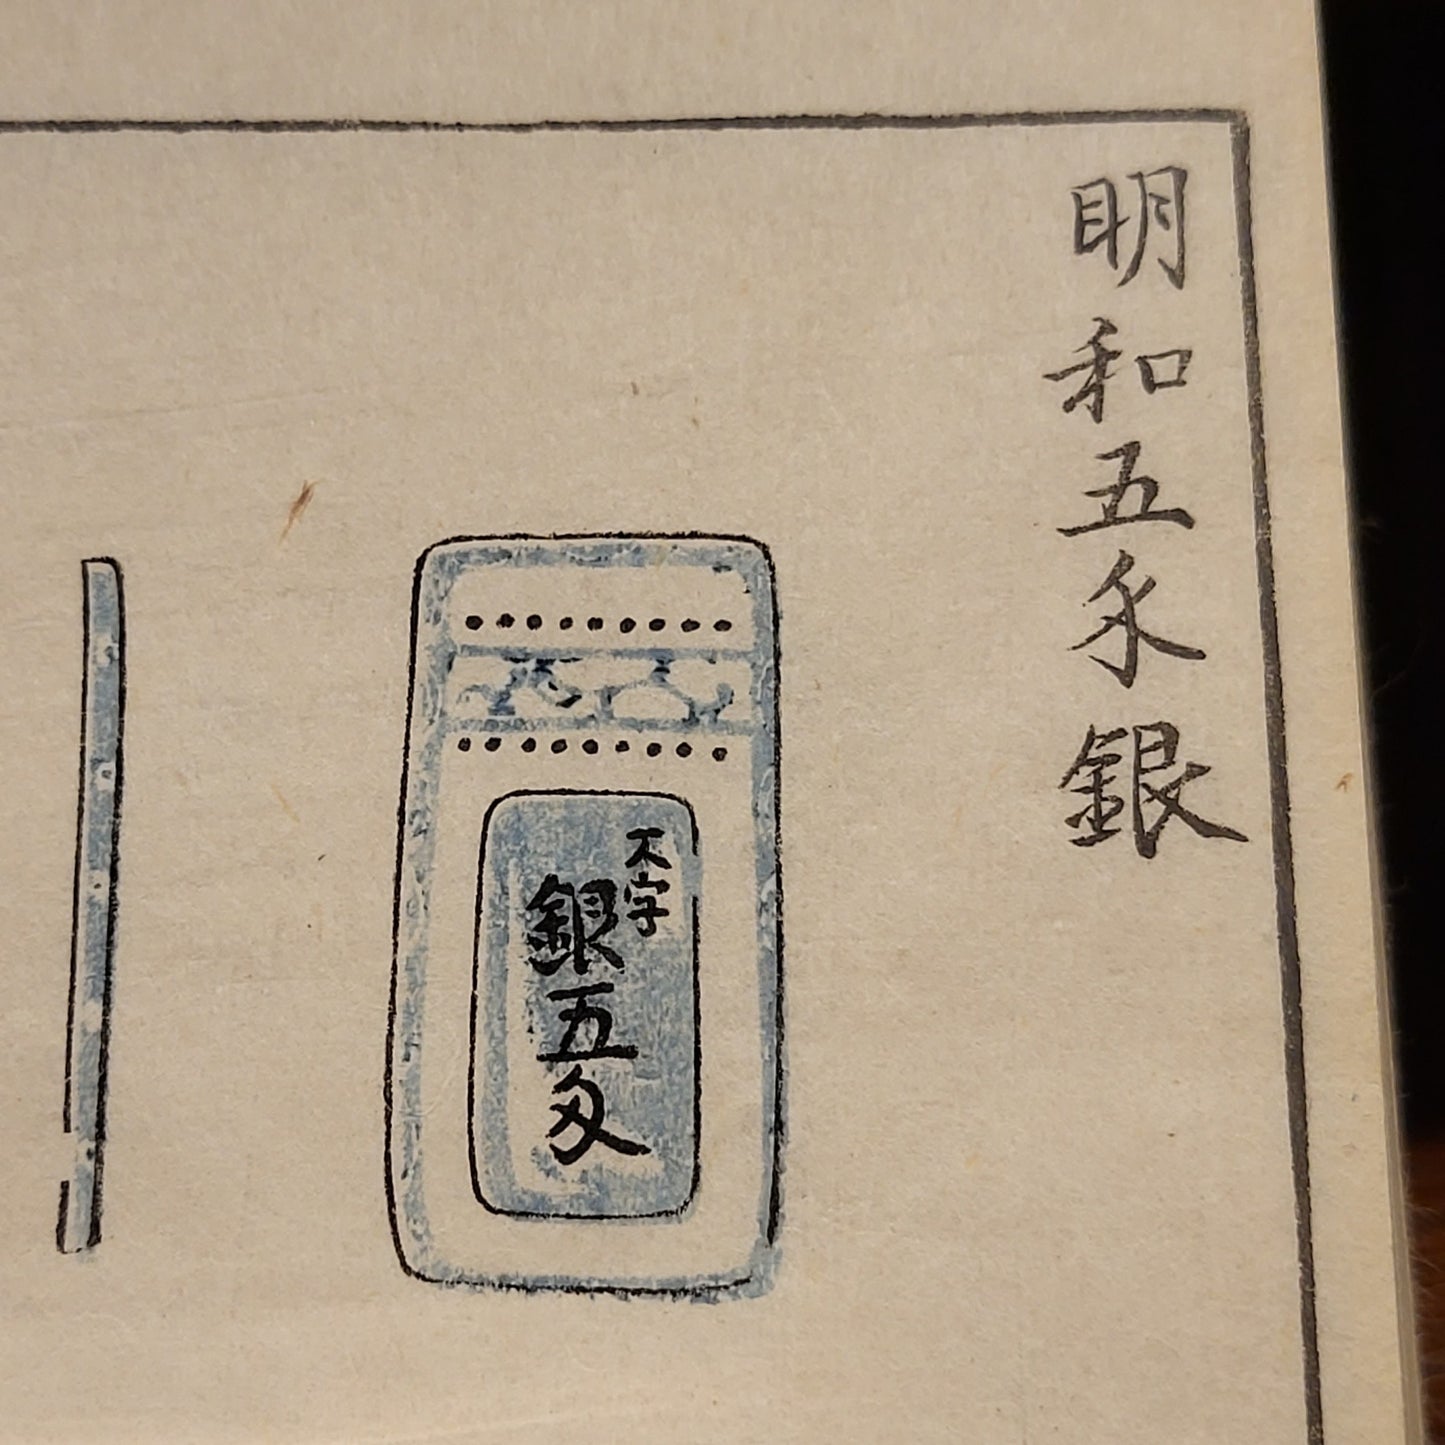 明和五匁銀
文字
銀五匁